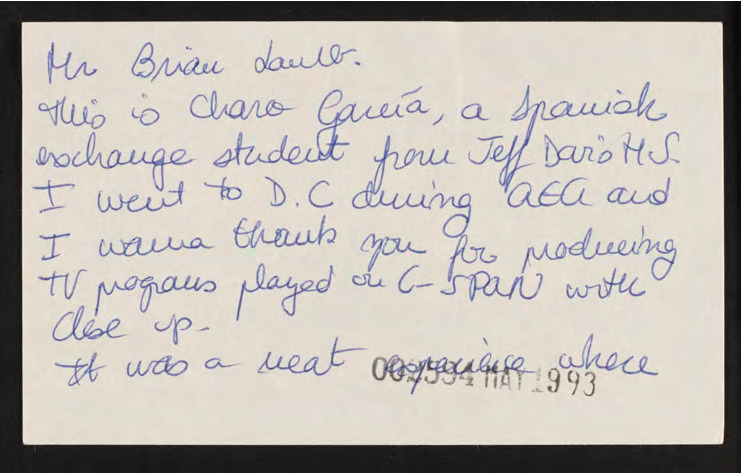 Mr Brian Lamb.
This is Charo García, a Spanish
exchange student from Jeff Davis H.S.
I went to D.C during and
I wanna thank you for producing
TV programs played on C-SPAN with
Close up-
It was a neat experience where
MAY 1993